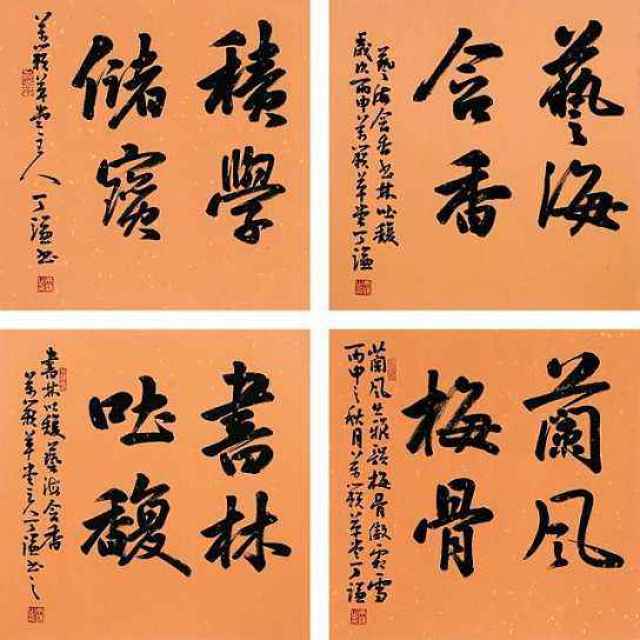 積學
儲寶
萬籟草堂主人丁謐書
藝海
含香
藝海含香書林吐馥
歲次丙申萬籟草堂丁謐
書林
吐馥
書林吐馥藝海含香
萬籟草堂主人丁謐書之
蘭風
梅骨
蘭風生雅韻梅骨傲霜雪
丙申之秋月萬籟草堂丁謐